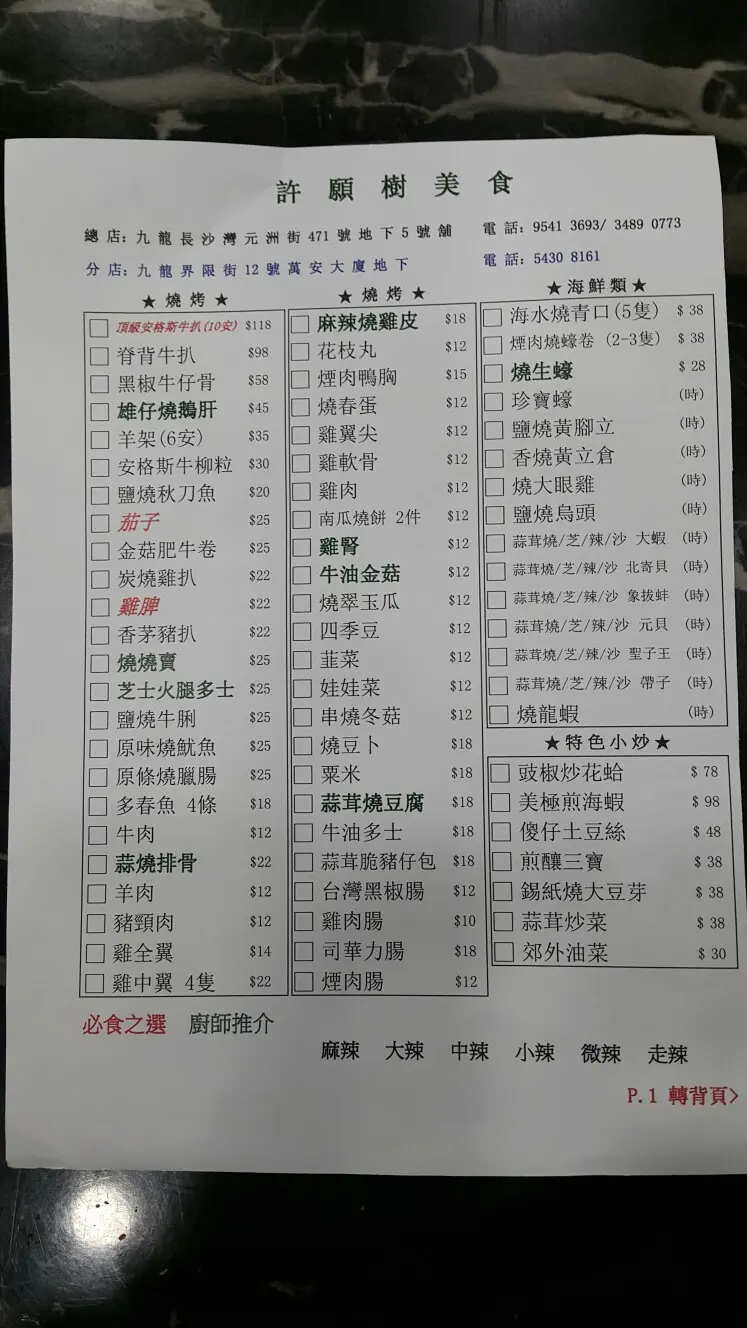 許願樹美食
總店：九龍長沙灣元洲街 471 號地下 5 號舖 電話：9541 3693/ 3489 0773
分店：九龍界限街 12 號萬安大廈地下 電話：5430 8161
★燒烤★
頂級安格斯牛扒(10安) $118
脊背牛扒 $98
黑椒牛仔骨 $58
雄仔燒鵝肝 $45
羊架(6安) $35
安格斯牛柳粒 $30
鹽燒秋刀魚 $20
茄子 $25
金菇肥牛卷 $25
炭燒雞扒 $22
雞脾 $22
香茅豬扒 $22
燒燒賣 $25
芝士火腿多士 $25
鹽燒牛脷 $25
原味燒魷魚 $25
原條燒臘腸 $25
多春魚 4條 $18
牛肉 $12
蒜燒排骨 $22
羊肉 $12
豬頸肉 $12
雞全翼 $14
雞中翼 4隻 $22
★燒烤★
麻辣燒雞皮 $18
花枝丸 $12
煙肉鴨胸 $15
燒春蛋 $12
雞翼尖 $12
雞軟骨 $12
雞肉 $12
南瓜燒餅 2件 $12
雞腎 $12
牛油金菇 $12
燒翠玉瓜 $12
四季豆 $12
韭菜 $12
娃娃菜 $12
串燒冬菇 $12
燒豆卜 $18
粟米 $18
蒜茸燒豆腐 $18
牛油多士 $18
蒜茸脆豬仔包 $18
台灣黑椒腸 $12
雞肉腸 $10
司華力腸 $18
煙肉腸 $12
★海鮮類★
海水燒青口(5隻) $ 38
煙肉燒蠔卷 (2-3隻) $ 38
燒生蠔 $ 28
珍寶蠔 (時)
鹽燒黃腳立 (時)
香燒黃立倉 (時)
燒大眼雞 (時)
鹽燒烏頭 (時)
蒜茸燒/芝/辣/沙 大蝦 (時)
蒜茸燒/芝/辣/沙 北寄貝 (時)
蒜茸燒/芝/辣/沙 象拔蚌 (時)
蒜茸燒/芝/辣/沙 元貝 (時)
蒜茸燒/芝/辣/沙 聖子王 (時)
蒜茸燒/芝/辣/沙 帶子 (時)
燒龍蝦 (時)
★特色小炒★
豉椒炒花蛤 $ 78
美極煎海蝦 $ 98
傻仔土豆絲 $ 48
煎釀三寶 $ 38
錫紙燒大豆芽 $ 38
蒜茸炒菜 $ 38
郊外油菜 $ 30
必食之選 廚師推介
麻辣 大辣 中辣 小辣 微辣 走辣
P.1 轉背頁>